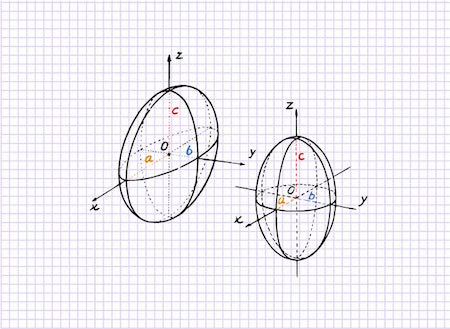 z
c
O
a
b
y
x
z
c
O
a
b
y
x